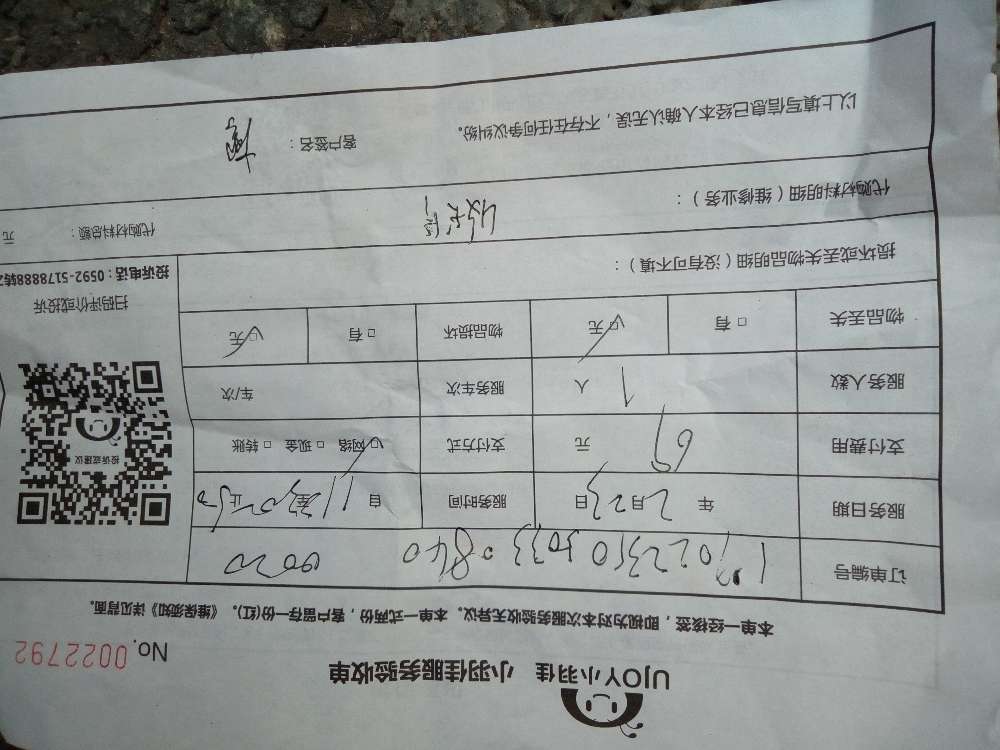 UJOY小羽佳 小羽佳服务验收单
No. 0022792
本单一经核签，即视为对本次服务验收无异议。本单一式两份，客户留存一份(红)。《维保须知》详见背面。
订单编号
服务日期 年 2月23日 服务时间 自 11 至 止
支付费用 69 元 支付方式 ☑网络 □现金 □转账
服务人数 1 人 服务车次 车/次
物品丢失 □有 ☑无 物品损坏 □有 ☑无
投诉或建议
扫码评价或投诉
投诉电话：0592-5178888转
损坏或丢失物品明细（没有可不填）：
代购材料明细（维修业务）：
代购材料总额： 元
以上填写信息已经本人确认无误，不存在任何争议纠纷。
客户签名：